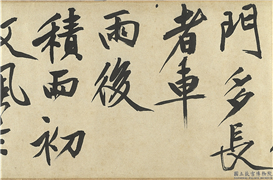 門多長
者車
雨後
積雨初
文風
國立故宮博物院